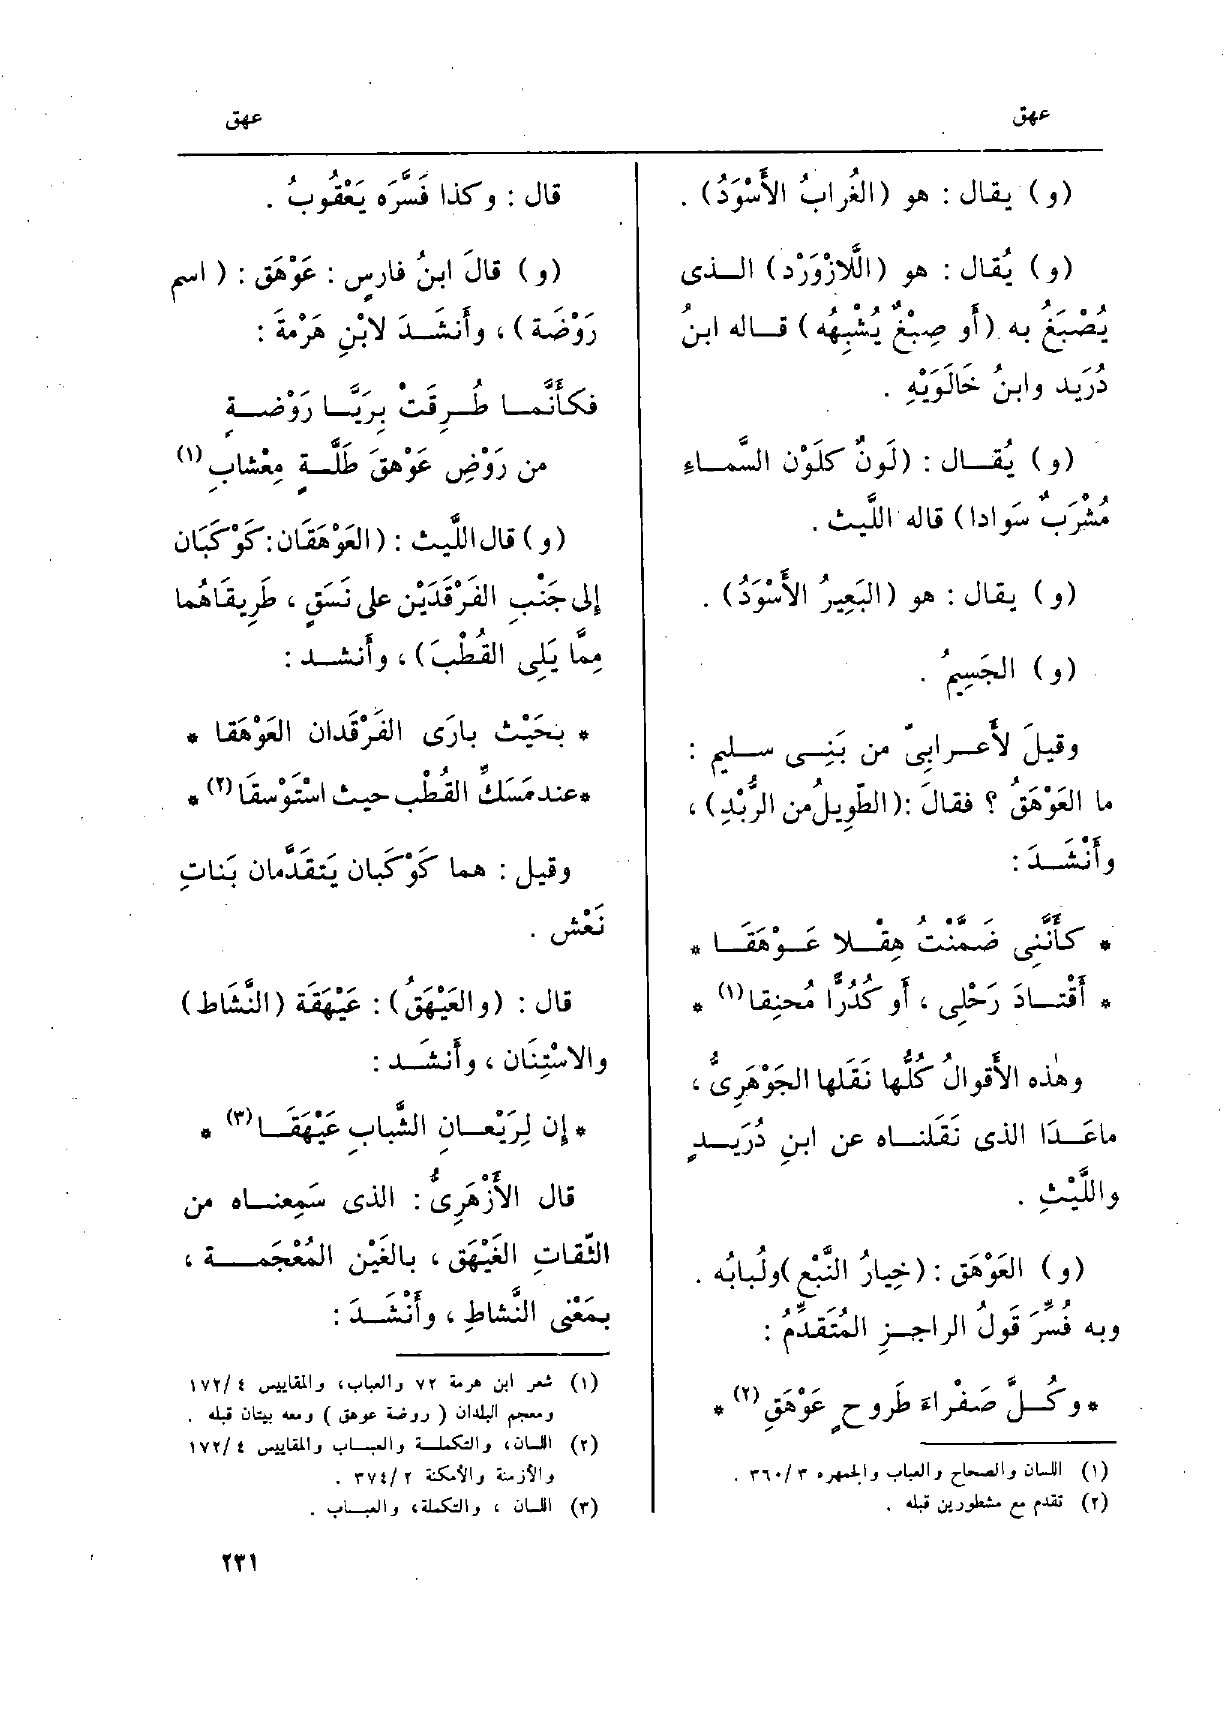 عهق
عهق
(و) يقال : هو (الغُرابُ الأَسْوَدُ) .
(و) يُقال : هو (اللَّازْوَرْد) الـذى
يُصْبَغُ به (أو صِبْغٌ يُشْبِهُه) قـاله ابنُ
دُرَيد وابنُ خَالَوَيْهِ .
(و) يُقـال : (لَونٌ كلَوْن السَّمـاءِ
مُشْرَبٌ سَوادا) قاله اللَّيث .
(و) يقال : هو (البَعِيرُ الأَسْوَدُ) .
(و) الجَسِيمُ .
وقيلَ لأَعـرابىّ من بَنِـى سـليم :
ما العَوْهَقُ ؟ فقالَ :(الطَّوِيلُ من الرُّبْدِ) ،
وأَنْشَـدَ :
* كأَنَّنِى ضَمَّنْتُ هِقْـلا عَـوْهَقَـا *
* أَقْتـادَ رَحْلِى ، أو كُدُرًّا مُحنِقا(١) *
وهٰذه الأَقوالُ كُلُّها نَقَلها الجَوْهَرِىُّ ،
ماعَـدَا الذى نَقَلنـاه عن ابنِ دُرَيـدٍ
واللَّيْثِ .
(و) العَوْهَق : (خِيارُ النَّبْعِ )ولُبابُه .
وبه فُسِّرَ قَولُ الراجـزِ المُتَقدِّمُ :
* وكُـلَّ صَفْراءَ طَروحٍ عَوْهَقِ(٢) *
(١) اللسان والصحاح والعباب والجمهره ٣/ ٣٦٠ .
(٢) تقدم مع مشطورين قبله .
قال : وكذا فَسَّرَه يَعْقُوبُ .
(و) قالَ ابنُ فارسٍ : عَوْهَق : ( اسم
رَوْضَة) ، وأَنشَـدَ لابْنِ هَرْمةَ :
فكأَنَّمـا طُـرِقَتْ بِرَيَّـا رَوْضـةٍ
من رَوْضِ عَوْهقَ طَلَّـةٍ مِعْشابِ(١)
(و) قال اللَّيث : (العَوْهَقَان : كَوْكبَان
إلى جَنْبِ الفَرْقَدَيْن على نَسَقٍ ، طَرِيقاهُما
مِمَّا يَلِى القُطْبَ) ، وأَنشـد :
* بحَيْث بارَى الفَرْقَدان العَوْهَقا *
* عند مَسَكِّ القُطْب حيث اسْتَوْسقَا(٢) *
وقيل : هما كَوْكَبان يَتقدَّمان بَناتِ
نَعْش .
قال : (والعَيْهَقُ) : عَيْهَقَة (النَّشَاط)
والاسْتِنَان ، وأَنشَـد :
* إن لِرَيْعـان الشَّبابِ عَيْهَقَـا(٣) *
قال الأَزْهَرِىُّ : الذى سَمِعنـاه من
الثِّقاتِ الغَيْهَق ، بالغَيْن المُعْجَمـة ،
بمَعْنى النَّشاطِ ، وأَنْشَـدَ :
(١) شعر ابن هرمة ٧٢ والعباب، والمقاييس ٤ /١٧٢
ومعجم البلدان ( روضة عوهق ) ومعه بيتان قبله .
(٢) اللسان، والتكملـة والعبـاب والمقاييس ٤ /١٧٢
والأزمنة والأمكنة ٢ /٣٧٤ .
(٣) اللسان ، والتكملة، والعبـاب .
٢٣١